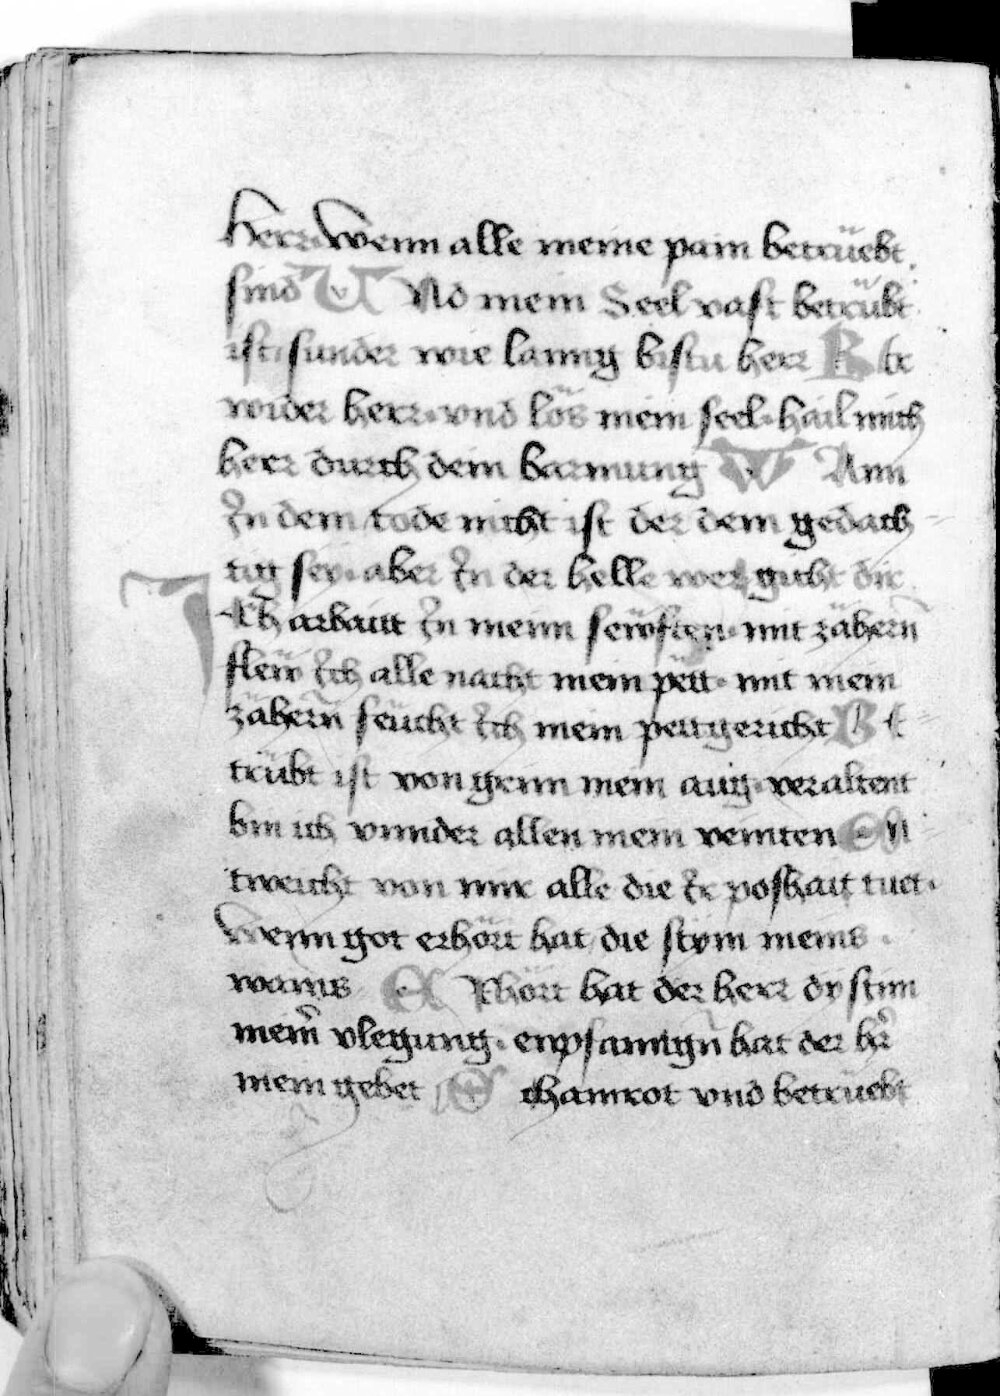 herr wenn alle meine pain betrüebt
sind VNd mein Seel vast betrübt
ist sunder wie lanng bistu herr Ker
wider herr · vnd lös mein seel · hail mich
herr durch dein barmung WAnn
In dem tode nicht ist der dem gedäch-
tig sey · aber In der helle wer gicht dir
Ich arbaitt In meim sewften · mit zähern̄
flew Ich alle nacht mein pëtt · mit mein
zähern̄ feücht Ich mein pettgericht Be-
trübt ist von grim mein aug · veraltent
bin ich vnnder allen mein veinten En-
tweicht von mir alle die Ir poshait tuet ·
wenn got erhört hat die stym meins
wains ERhört hat der herr dy stim
meīn vlegung · enpfamign̄ hat der hr̄
mein gebet Schamrot vnd betruebt